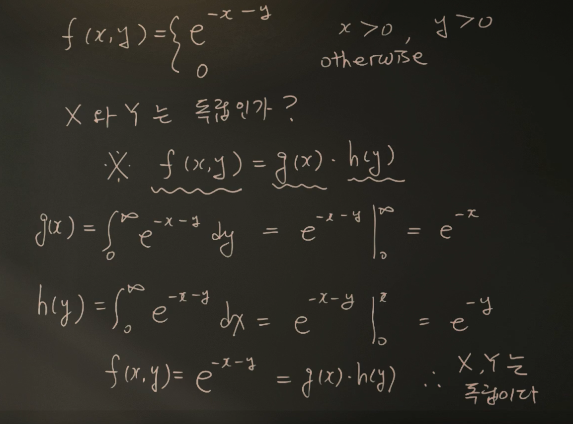 f(x,y) = { e^{-x-y}   x>0, y>0
0   otherwise
X와 Y는 독립인가?
※ f(x,y) = g(x)·h(y)
g(x) = ∫_0^∞ e^{-x-y} dy = e^{-x-y} |_0^∞ = e^{-x}
h(y) = ∫_0^∞ e^{-x-y} dx = e^{-x-y} |_0^x = e^{-y}
f(x,y) = e^{-x-y} = g(x)·h(y) ∴ X,Y는
독립이다